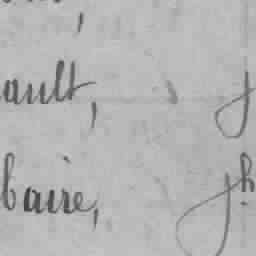 ault, J
baire, Jh